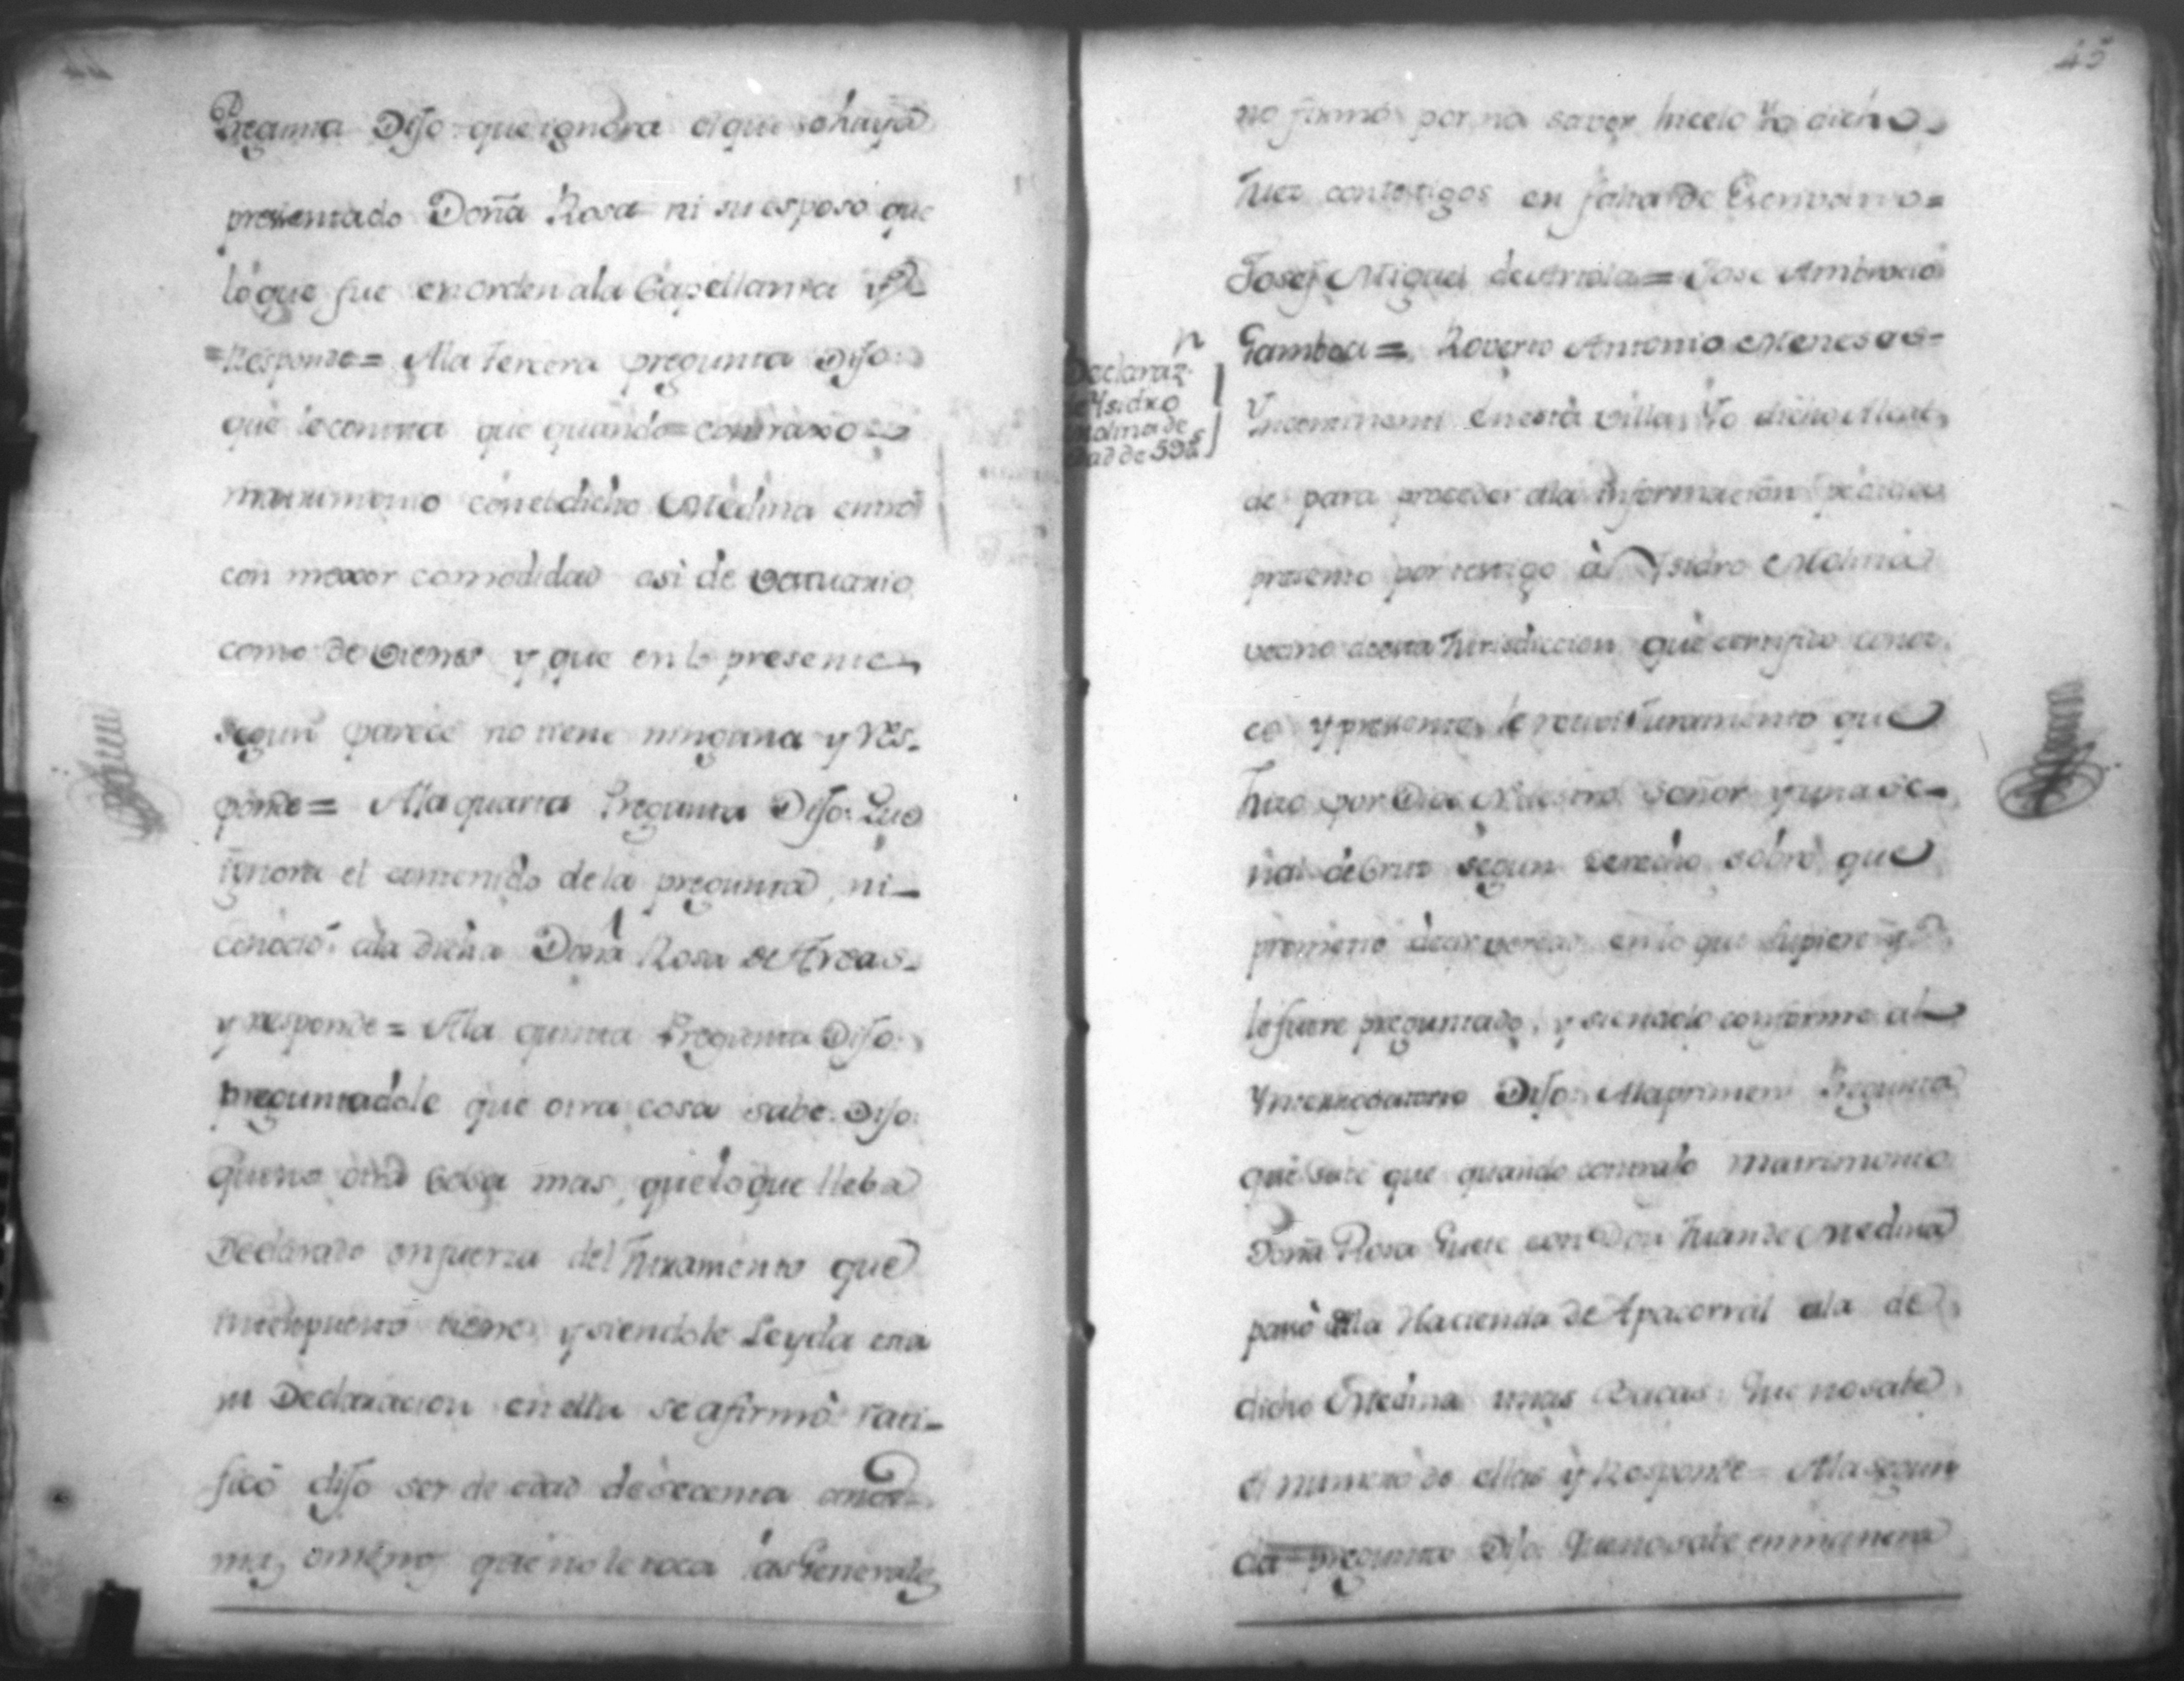 Pregunta Dijo que ignora el que se haya
presentado Doña Rosa ni su esposo que
lo que fue en orden ala Capellania y
Responde = Ala tercera pregunta Dijo
que le consta que quando contraxo
matrimonio con el dicho Medina entró
con mexor comodidad asi de vestuario
como de vienes y que en lo presente
segun parece no tiene ninguna y Res-
ponde = Ala quarta Pregunta Dijo: Que
ignora el contenido de la pregunta, ni
conoció ala dicha Doña Rosa de Arcas
y responde = Ala quinta Pregunta Dijo
preguntadole que otra cosa sabe. Dijo
que no otra cosa mas, que lo que lleba
Declarado en fuerza del Juramento que
interpuesto tiene, y siendole Leyda esta
su Declaracion en ella se afirmó rati-
ficó dijo ser de edad de secenta años
mas, o menos que no le toca las Generales
45
no firmó por no saver hicelo Yo dicho
Juez con testigos en falta de Escrivano =
Josef Miguel de Arriola = Jose Ambrocio
Gamboa = Roverto Antonio Meneses -
Declaraz.n
de Ysidro
Molina de
edad de 59 as
Yncontinenti en esta villa Yo dicho Alcal-
de para proceder ala informacion pedida
presento por testigo à Ysidro Molina
vecino de esta Jurisdiccion que certifico conoz-
co y presente le recivi Juramento que
hizo por Dios Nuestro Señor y una se-
ñal de Cruz segun derecho sobre que
prometio decir verdad en lo que supiere y
le fuere preguntado, y siendolo conforme al
Ynterrogatorio Dijo: Ala primera Pregunta
que sabe que quando contrajo matrimonio
Doña Rosa Guete con Don Juan de Medina
pasó ala Hacienda de Apacorral ala de
dicho Medina unas Bacas: Que no sabe
el numero de ellas y Responde = Ala segun
da pregunta Dijo Que no sabe en manera